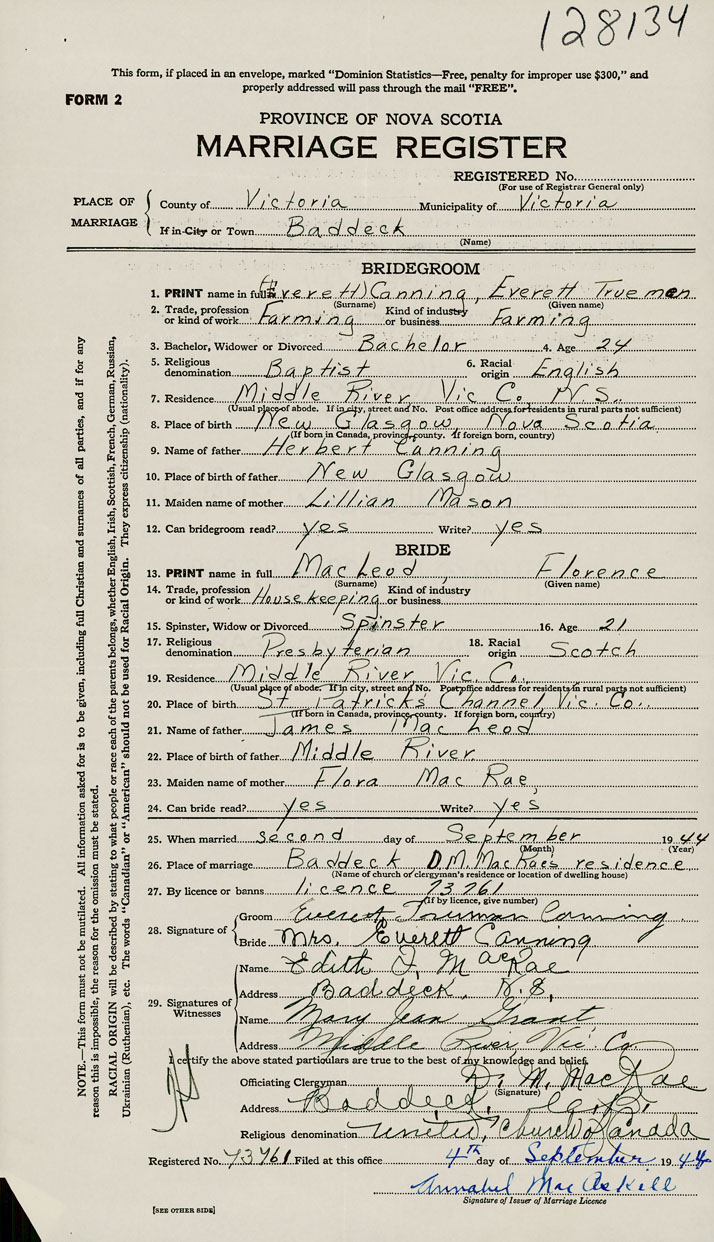 128134
This form, if placed in an envelope, marked "Dominion Statistics—Free, penalty for improper use $300," and
properly addressed will pass through the mail "FREE".
FORM 2
PROVINCE OF NOVA SCOTIA
MARRIAGE REGISTER
REGISTERED No.
(For use of Registrar General only)
PLACE OF MARRIAGE
County of Victoria Municipality of Victoria
If in City or Town Baddeck
(Name)
BRIDEGROOM
1. PRINT name in full (Everett) Canning, Everett Trueman
(Surname) (Given name)
2. Trade, profession or kind of work Farming Kind of industry or business Farming
3. Bachelor, Widower or Divorced Bachelor 4. Age 24
5. Religious denomination Baptist 6. Racial origin English
7. Residence Middle River Vic. Co. N.S.
(Usual place of abode. If in city, street and No. Post office address for residents in rural parts not sufficient)
8. Place of birth New Glasgow, Nova Scotia
(If born in Canada, province, county. If foreign born, country)
9. Name of father Herbert Canning
10. Place of birth of father New Glasgow
11. Maiden name of mother Lillian Mason
12. Can bridegroom read? yes Write? yes
BRIDE
13. PRINT name in full MacLeod Florence
(Surname) (Given name)
14. Trade, profession or kind of work Housekeeping Kind of industry or business
15. Spinster, Widow or Divorced Spinster 16. Age 21
17. Religious denomination Presbyterian 18. Racial origin Scotch
19. Residence Middle River, Vic. Co.
(Usual place of abode. If in city, street and No. Post office address for residents in rural parts not sufficient)
20. Place of birth St Patricks Channel, Vic. Co.
(If born in Canada, province, county. If foreign born, country)
21. Name of father James MacLeod
22. Place of birth of father Middle River
23. Maiden name of mother Flora MacRae,
24. Can bride read? yes Write? yes
25. When married second day of September 1944
(Month) (Year)
26. Place of marriage Baddeck D.M. MacRae's residence
(Name of church or clergyman's residence or location of dwelling house)
27. By licence or banns licence 73761
(If by licence, give number)
28. Signature of
Groom Everett Truman Canning
Bride Mrs. Everett Canning
29. Signatures of Witnesses
Name Edith F. MacRae
Address Baddeck, N.S.
Name Mary Jean Grant
Address Middle River Vic. Co.
I certify the above stated particulars are true to the best of my knowledge and belief.
Officiating Clergyman D. M. MacRae
(Signature)
Address Baddeck,
Religious denomination United Church of Canada
Registered No. 73761 Filed at this office 4th day of September 1944
Annabel MacAskill
Signature of Issuer of Marriage Licence
[SEE OTHER SIDE]
NOTE.—This form must not be mutilated. All information asked for is to be given, including full Christian and surnames of all parties, and if for any
reason this is impossible, the reason for the omission must be stated.
RACIAL ORIGIN will be described by stating to what people or race each of the parents belongs, whether English, Irish, Scottish, French, German, Russian,
Ukrainian (Ruthenian), etc. The words "Canadian" or "American" should not be used for Racial Origin. They express citizenship (nationality).